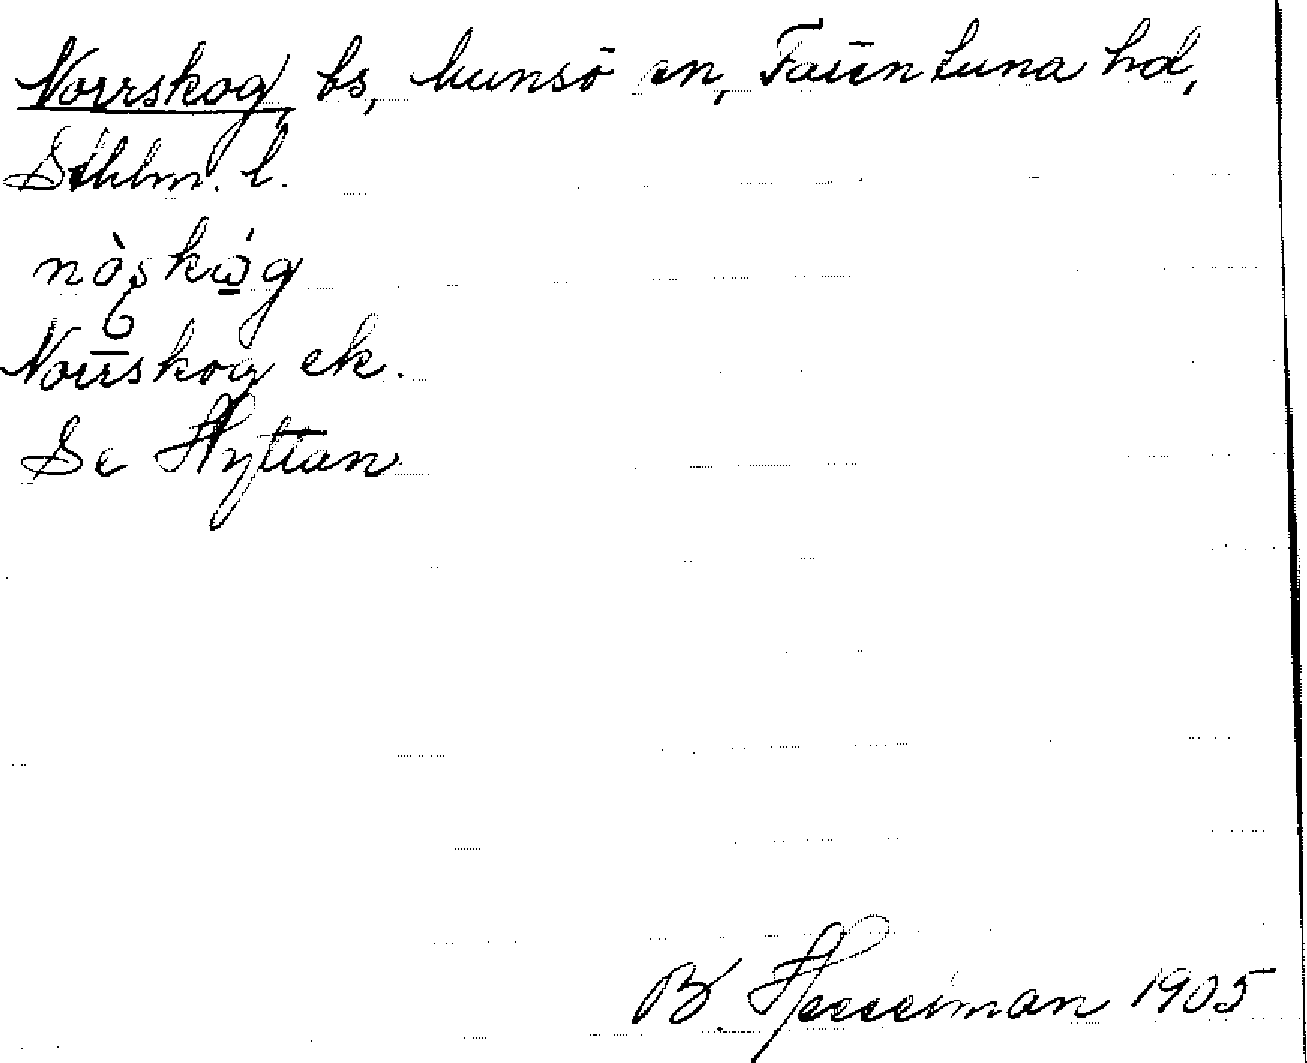 Norrskog, bs, Munsö sn, Färentuna hd,
Sthlm. l.
nòskóg
Norrskog ek.
Se Hyttan
B. Hesselman 1905